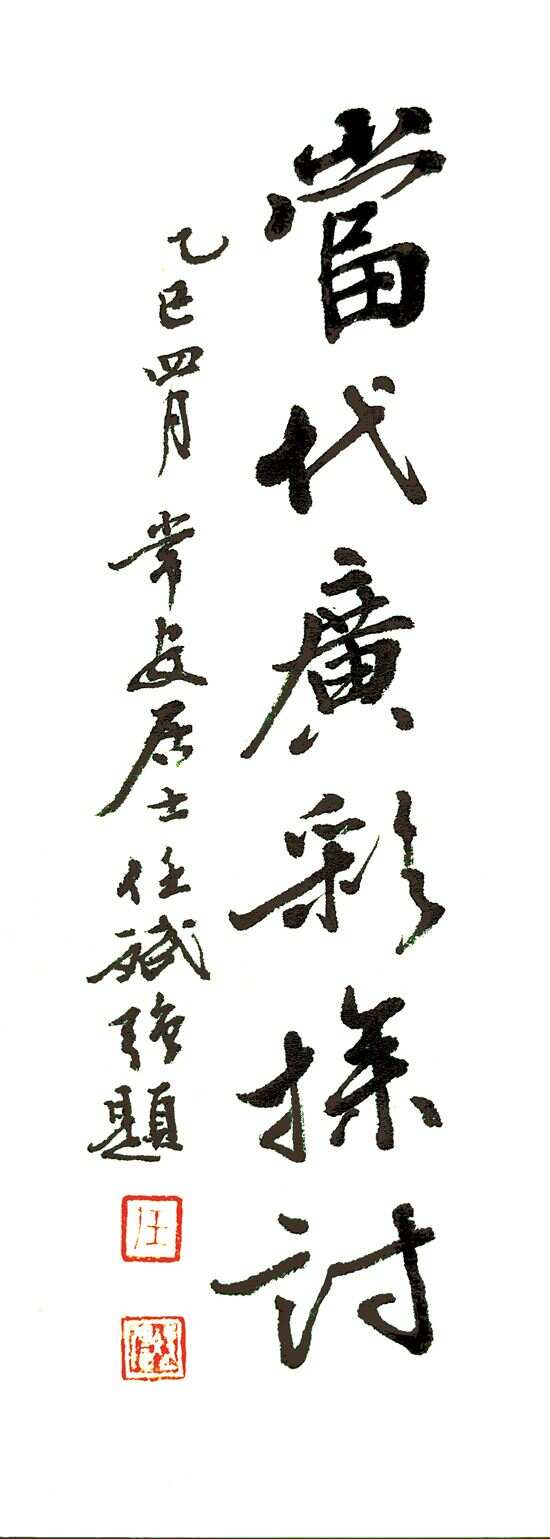 當代廣彩探討
乙巳四月 常安居士任斌強題
任